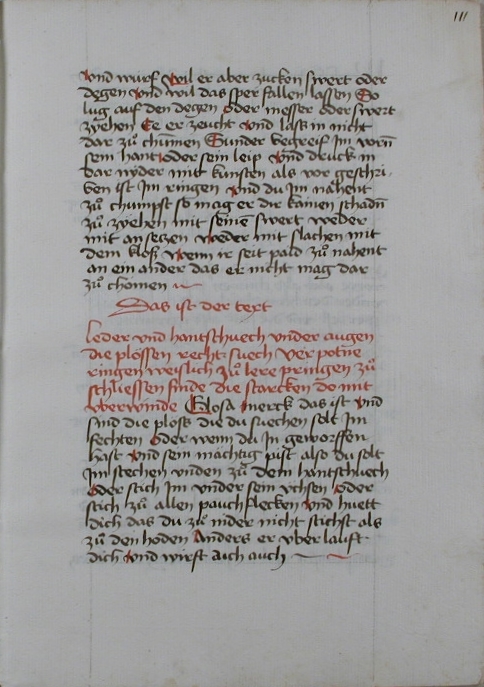 111
vnd wurf wil er aber zucken swert oder
degen vnd wil das sper fallen lassen So
lug auf den degen oder messer oder swert
zyehen Ee er zeucht vnd lass in nicht
dar zů chumen Sunder begreif im vorñ
sein hant oder sein leip vnd druck in
dar nyder mit künsten als vor geschri-
ben ist Im ringen vnd du im nahent
zů chumpst so mag er dir kainen schadñ
zů zyehen mit seinem swert weder
mit an setzen weder mit slachen mit
dem kloß wenn ir seit paid zů nahent
an ein ander das er nicht mag dar
zů chomen
Das ist der text
leder vnd hantschuech vnder augen
die plossen recht suech Verpotne
ringen weislich zů lere pringen zů
schliessen finde die starcken do mit
vberwinde Glosa merck das ist vnd
sind die ploss die du suechen solt im
fechten oder wenn du in geworffen
hast vnd sein mächtig pist also du solt
im stechen vnden zů dem hantschuech
oder stich im vnder sein vchsen oder
stich zů allen pauchflecken vnd huett
dich das du zů nider nicht stichst als
zů den hoden Anders er vberlauft
dich vnd wirft auch auch